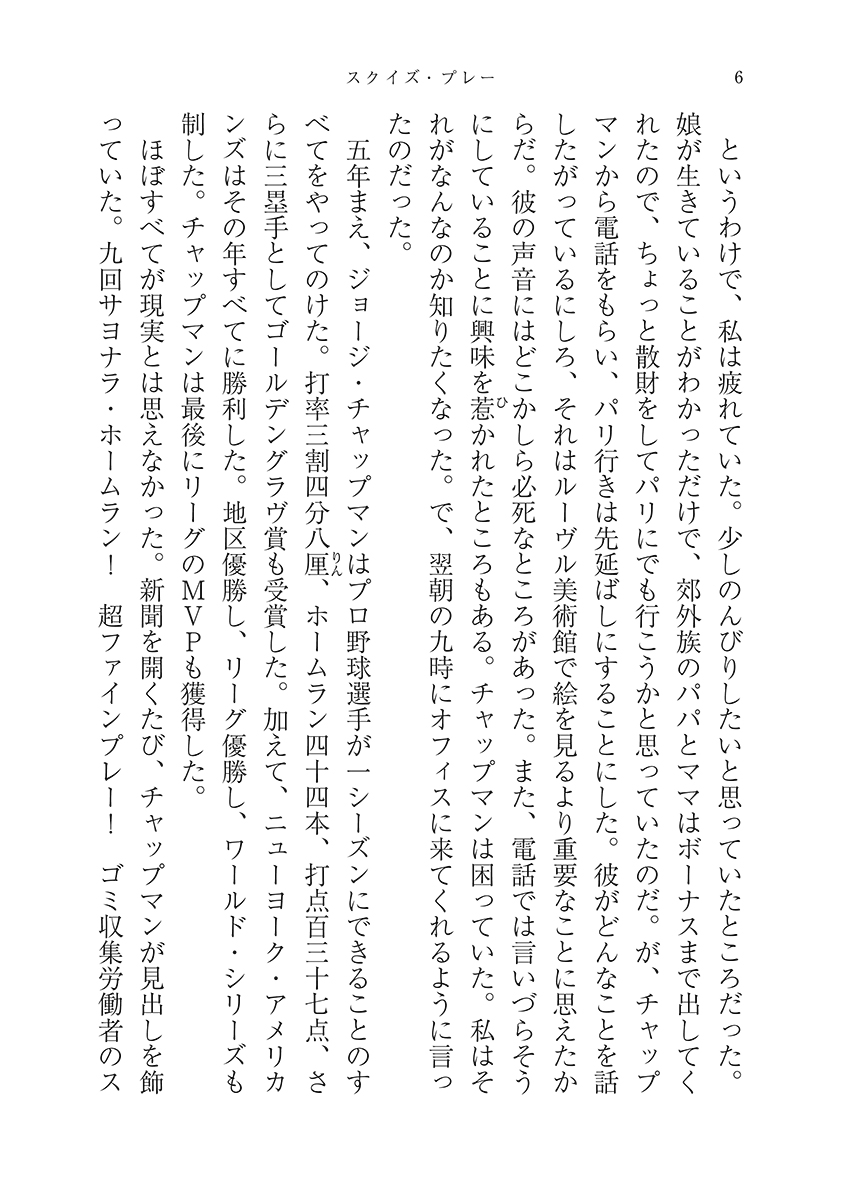 スクイズ・プレー
6
　というわけで、私は疲れていた。少しのんびりしたいと思っていたところだった。
娘が生きていることがわかっただけで、郊外族のパパとママはボーナスまで出してく
れたので、ちょっと散財をしてパリにでも行こうかと思っていたのだ。が、チャップ
マンから電話をもらい、パリ行きは先延ばしにすることにした。彼がどんなことを話
したがっているにしろ、それはルーヴル美術館で絵を見るより重要なことに思えたか
らだ。彼の声音にはどこかしら必死なところがあった。また、電話では言いづらそう
にしていることに興味を惹かれたところもある。チャップマンは困っていた。私はそ
れがなんなのか知りたくなった。で、翌朝の九時にオフィスに来てくれるように言っ
たのだった。
　五年まえ、ジョージ・チャップマンはプロ野球選手が一シーズンにできることのす
べてをやってのけた。打率三割四分八厘、ホームラン四十四本、打点百三十七点、さ
らに三塁手としてゴールデングラヴ賞も受賞した。加えて、ニューヨーク・アメリカ
ンズはその年すべてに勝利した。地区優勝し、リーグ優勝し、ワールド・シリーズも
制した。チャップマンは最後にリーグのＭＶＰも獲得した。
　ほぼすべてが現実とは思えなかった。新聞を開くたび、チャップマンが見出しを飾
っていた。九回サヨナラ・ホームラン！　超ファインプレー！　ゴミ収集労働者のス